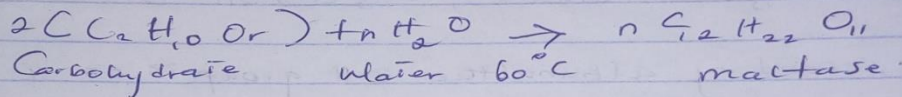 2(C₂H₁₀Or) + nH₂O → nC₁₂H₂₂O₁₁
Carbohydrate Water 60°C mactase